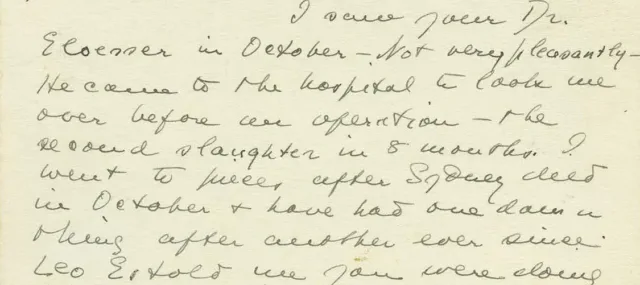 I saw your Dr.
Eloesser in October – Not very pleasantly –
He came to the hospital to look me
over before an operation – the
second slaughter in 8 months. I
went to pieces after Sydney died
in October & have had one damn
thing after another ever since.
Leo E. told me you were doing